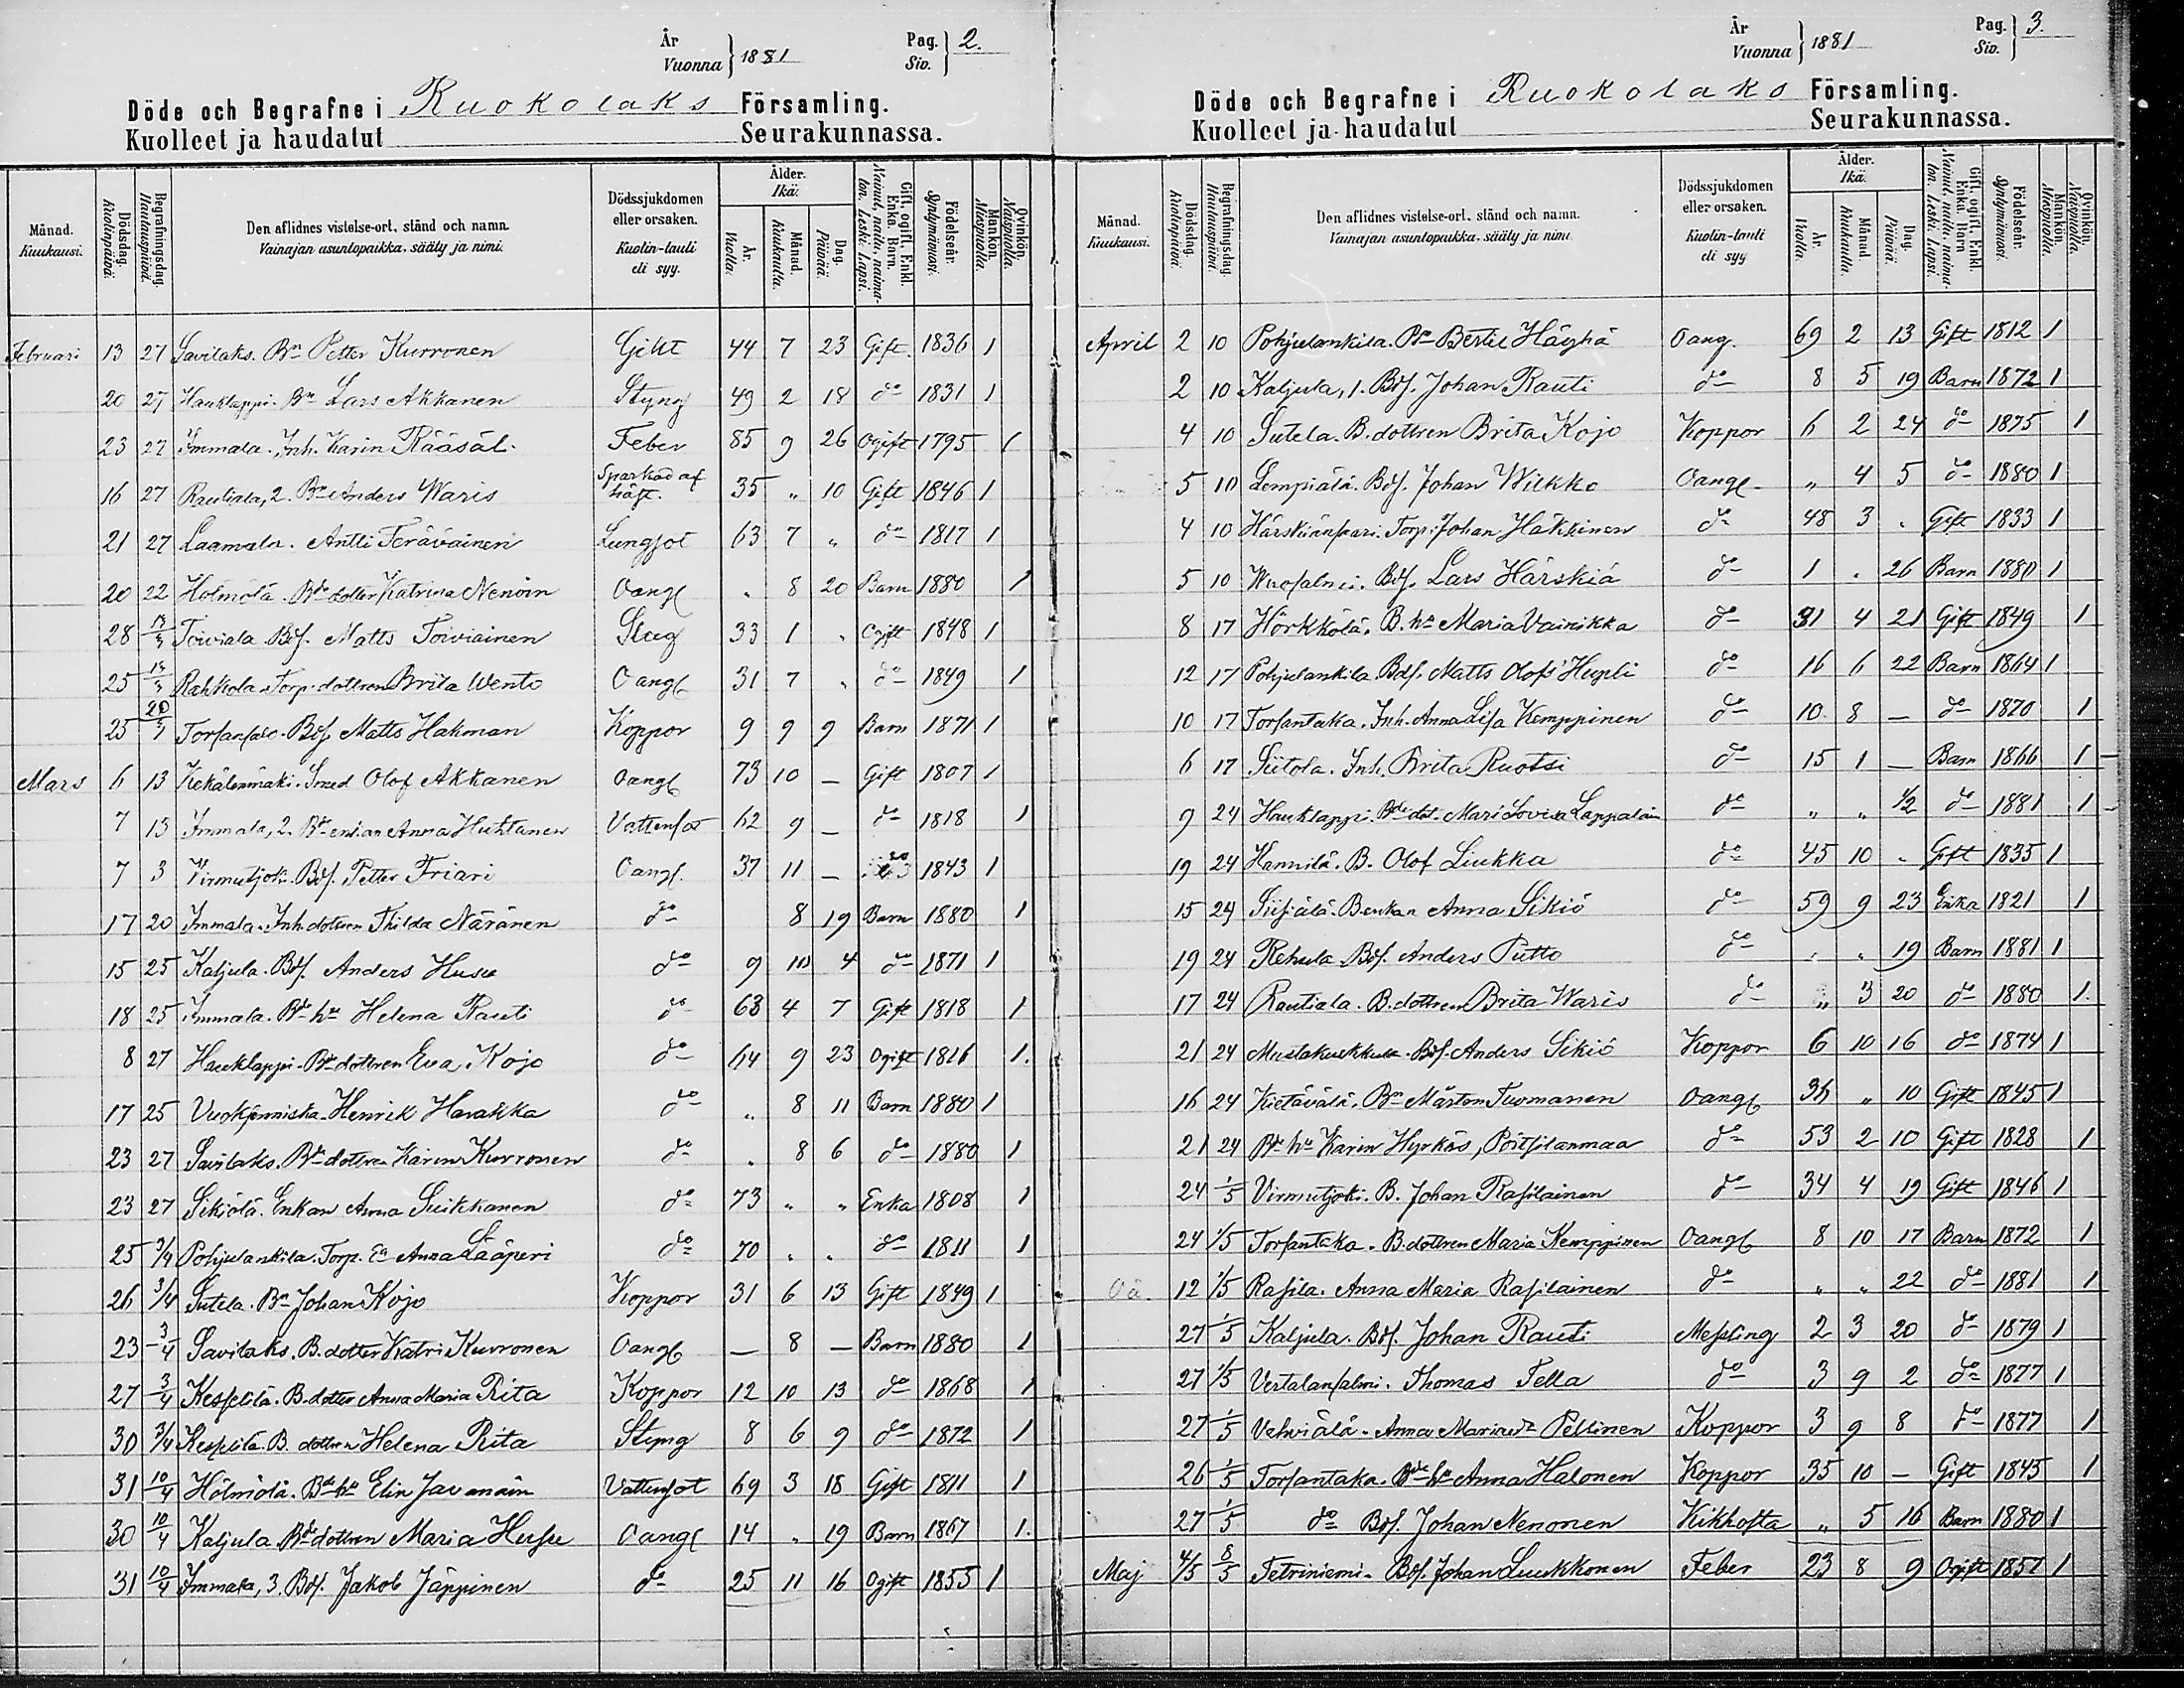 År
Vuonna } 1881
Pag.
Siv. } 2.
Döde och Begrafne i Ruokolaks Församling.
Kuolleet ja haudatut Seurakunnassa.
Månad. Kuukausi.
Dödsdag. Kuolinpäivä.
Begrafningsdag. Hautauspäivä.
Den aflidnes vistelse-ort, stånd och namn.
Vainajan asuntopaikka, sääty ja nimi.
Dödssjukdomen eller orsaken.
Kuolin-tauti eli syy.
Ålder. Ikä.
År. Vuotta.
Månad. Kuukautta.
Dag. Päivää.
Gift, ogift, Enkl. Enka. Barn.
Nainut, naitu, naimaton. Leski. Lapsi.
Födelseår. Syntymävuosi.
Mankön. Miespuolia.
Qvinkön. Naispuolia.
Februari 13 27 Savilaks. Bn Petter Kurronen Gikt 44 7 23 Gift. 1836 1
20 27 Hauklappi. Bn Lars Akkanen Styng 49 2 18 do 1831 1
23 27 Immala. Inh. Karin Rääsäl. Feber 85 9 26 Ogift 1795 1
16 27 Rautiala, 2. Bn Anders Waris Sparkad af häst. 35 " 10 Gift 1846 1
21 27 Laamala. Antti Terävainen Lungsot 63 7 " do 1817 1
20 22 Holmola. Bde dotter Katrina Nenoin Oangf " 8 20 Barn 1880 1
28 13/3 Toiviala Bds. Matts Toiviainen Slag 33 1 " Ogift 1848 1
25 13/3 Rahkola. Torp. dottren Brita Wento Oangf 31 7 " do 1849 1
25 20/3 Torsansalo. Bds Matts Hakman Koppor 9 9 9 Barn 1871 1
Mars 6 13 Kekälenmäki. Smed Olof Akkanen Oangf 73 10 — Gift 1807 1
7 13 Immala, 2. Bde enkan Anna Huhtanen Vattensot 62 9 — do 1818 1
7 3 Virmutjoki. Bds. Petter Friari Oangf. 37 11 — do 1843 1
17 20 Immala. Inh. dottren Thilda Näränen do 8 19 Barn 1880 1
15 25 Kaljula. Bds. Anders Husu do 9 10 4 do 1871 1
18 25 Immala. Bde hu Helena Rauti do 63 4 7 Gift 1818 1
8 27 Hauklappi. Bde dottren Eva Kojo do 64 9 23 Ogift 1816 1.
17 25 Vuoksenniska. Henrik Harakka do " 8 11 Barn 1880 1
23 27 Savilaks. Bde dottren Karin Kurronen do " 8 6 do 1880 1
23 27 Sikiölä. Enkan Anna Suikkanen do 73 " " Enka 1808 1
25 3/4 Pohjulankila. Torp. Ea Anna Lääperi do 70 " " do 1811 1
26 3/4 Sutela. Bn Johan Kojo Koppor 31 6 13 Gift 1849 1
23 3/4 Savilaks. B. dotter Katri Kurronen Oangf — 8 — Barn 1880 1
27 3/4 Kesselilä. B. dotter Anna Maria Rita Koppor 12 10 13 do 1868 1
30 3/4 Kesselilä. B. dottren Helena Rita Styng 8 6 9 do 1872 1
31 10/4 Hölmölä. Bde hu Elin Javanäin Vattensot 69 3 18 Gift 1811 1
30 10/4 Kaljula Bde dottren Maria Husu Oangf 14 " 19 Barn 1867 1.
31 10/4 Immala, 3. Bds. Jakob Jäppinen do 25 11 16 Ogift 1855 1
År
Vuonna } 1881
Pag.
Siv. } 3.
Döde och Begrafne i Ruokolaks Församling.
Kuolleet ja haudatut Seurakunnassa.
Månad. Kuukausi.
Dödsdag. Kuolinpäivä.
Begrafningsdag. Hautauspäivä.
Den aflidnes vistelse-ort, stånd och namn.
Vainajan asuntopaikka, sääty ja nimi.
Dödssjukdomen eller orsaken.
Kuolin-tauti eli syy
Ålder. Ikä.
År. Vuotta.
Månad. Kuukautta.
Dag. Päivää.
Gift, ogift, Enkl. Enka. Barn.
Nainut, naitu, naimaton. Leski. Lapsi.
Födelseår. Syntymävuosi.
Mankön. Miespuolia.
Qvinkön. Naispuolia.
April 2 10 Pohjulankila. Bn Bertil Häyhä Oang. 69 2 13 Gift 1812 1
2 10 Kaljula, 1. Bds. Johan Rauti do 8 5 19 Barn 1872 1
4 10 Sutela. B. dottren Brita Kojo Koppor 6 2 24 do 1875 1
5 10 Lempiälä. Bds. Johan Wilkko Oangf. " 4 5 do 1880 1
4 10 Härskiänsaari. Torp. Johan Häkkinen do 48 3 " Gift 1833 1
5 10 Wuosalmi. Bds. Lars Härskiä do 1 " 26 Barn 1880 1
8 17 Hörkkölä. B. hu Maria Vainikka do 31 4 21 Gift 1849 1
12 17 Pohjulankila. Bds. Matts Olofs Hupli do 16 6 22 Barn 1864 1
10 17 Torsantaka. Inh. Anna Lisa Kemppinen do 10 8 — do 1870 1
6 17 Siitola. Inh. Brita Ruotsi do 15 1 — Barn 1866 1
9 24 Hauklappi. Bde dot. Mari Lovisa Lappalain do " " 1/2 do 1881 1
19 24 Hannilä. B. Olof Liukka do 45 10 " Gift 1835 1
15 24 Siisiälä. B. enkan Anna Sikiö do 59 9 23 Enka 1821 1
19 24 Rehula. Bds. Anders Putto do " " 19 Barn 1881 1
17 24 Rautiala. B. dottren Brita Waris do " 3 20 do 1880 1.
21 24 Mustakuukkula. Bds. Anders Sikiö Koppor 6 10 16 do 1874 1
16 24 Kietävälä. Bn Mårten Tuomanen Oangf 36 " 10 Gift 1845 1
21 24 Bde hu Karin Hyrkäs, Pöitsilanmaa do 53 2 10 Gift 1828 1
24 1/5 Virmutjoki. B. Johan Rasilainen do 34 4 19 Gift 1846 1
24 1/5 Torsantaka. B. dottren Maria Kemppinen Oangf 8 10 17 Barn 1872 1
Oä. 12 1/5 Rasila. Anna Maria Rasilainen do " " 22 do 1881 1
27 1/5 Kaljula. Bds. Johan Rauti Messling 2 3 20 do 1879 1
27 1/5 Vertalansalmi. Thomas Tella do 3 9 2 do 1877 1
27 1/5 Vehviälä. Anna Maria Pellinen Koppor 3 9 8 do 1877 1
26 1/5 Torsantaka. Bde hu Anna Halonen Koppor 35 10 — Gift 1845 1
27 1/5 do Bds. Johan Nenonen Kikhosta " 5 16 Barn 1880 1
Maj 4/5 8/5 Tetriniemi. Bds. Johan Luukkonen Feber 23 8 9 Ogift 1857 1